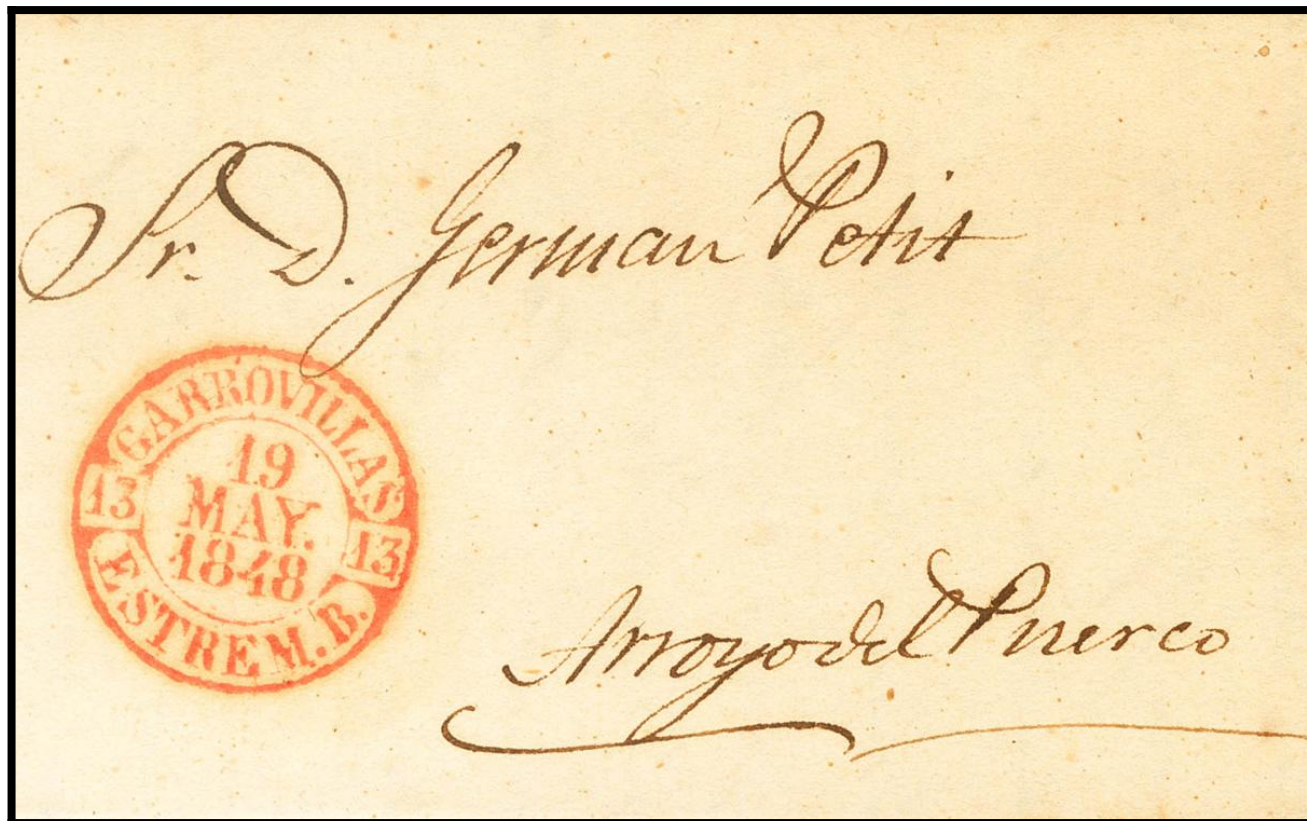 Sr. D. German Petit
GARROVILLAS
19
MAY.
1848
13
13
ESTREM. B.
Arroyo del Puerco